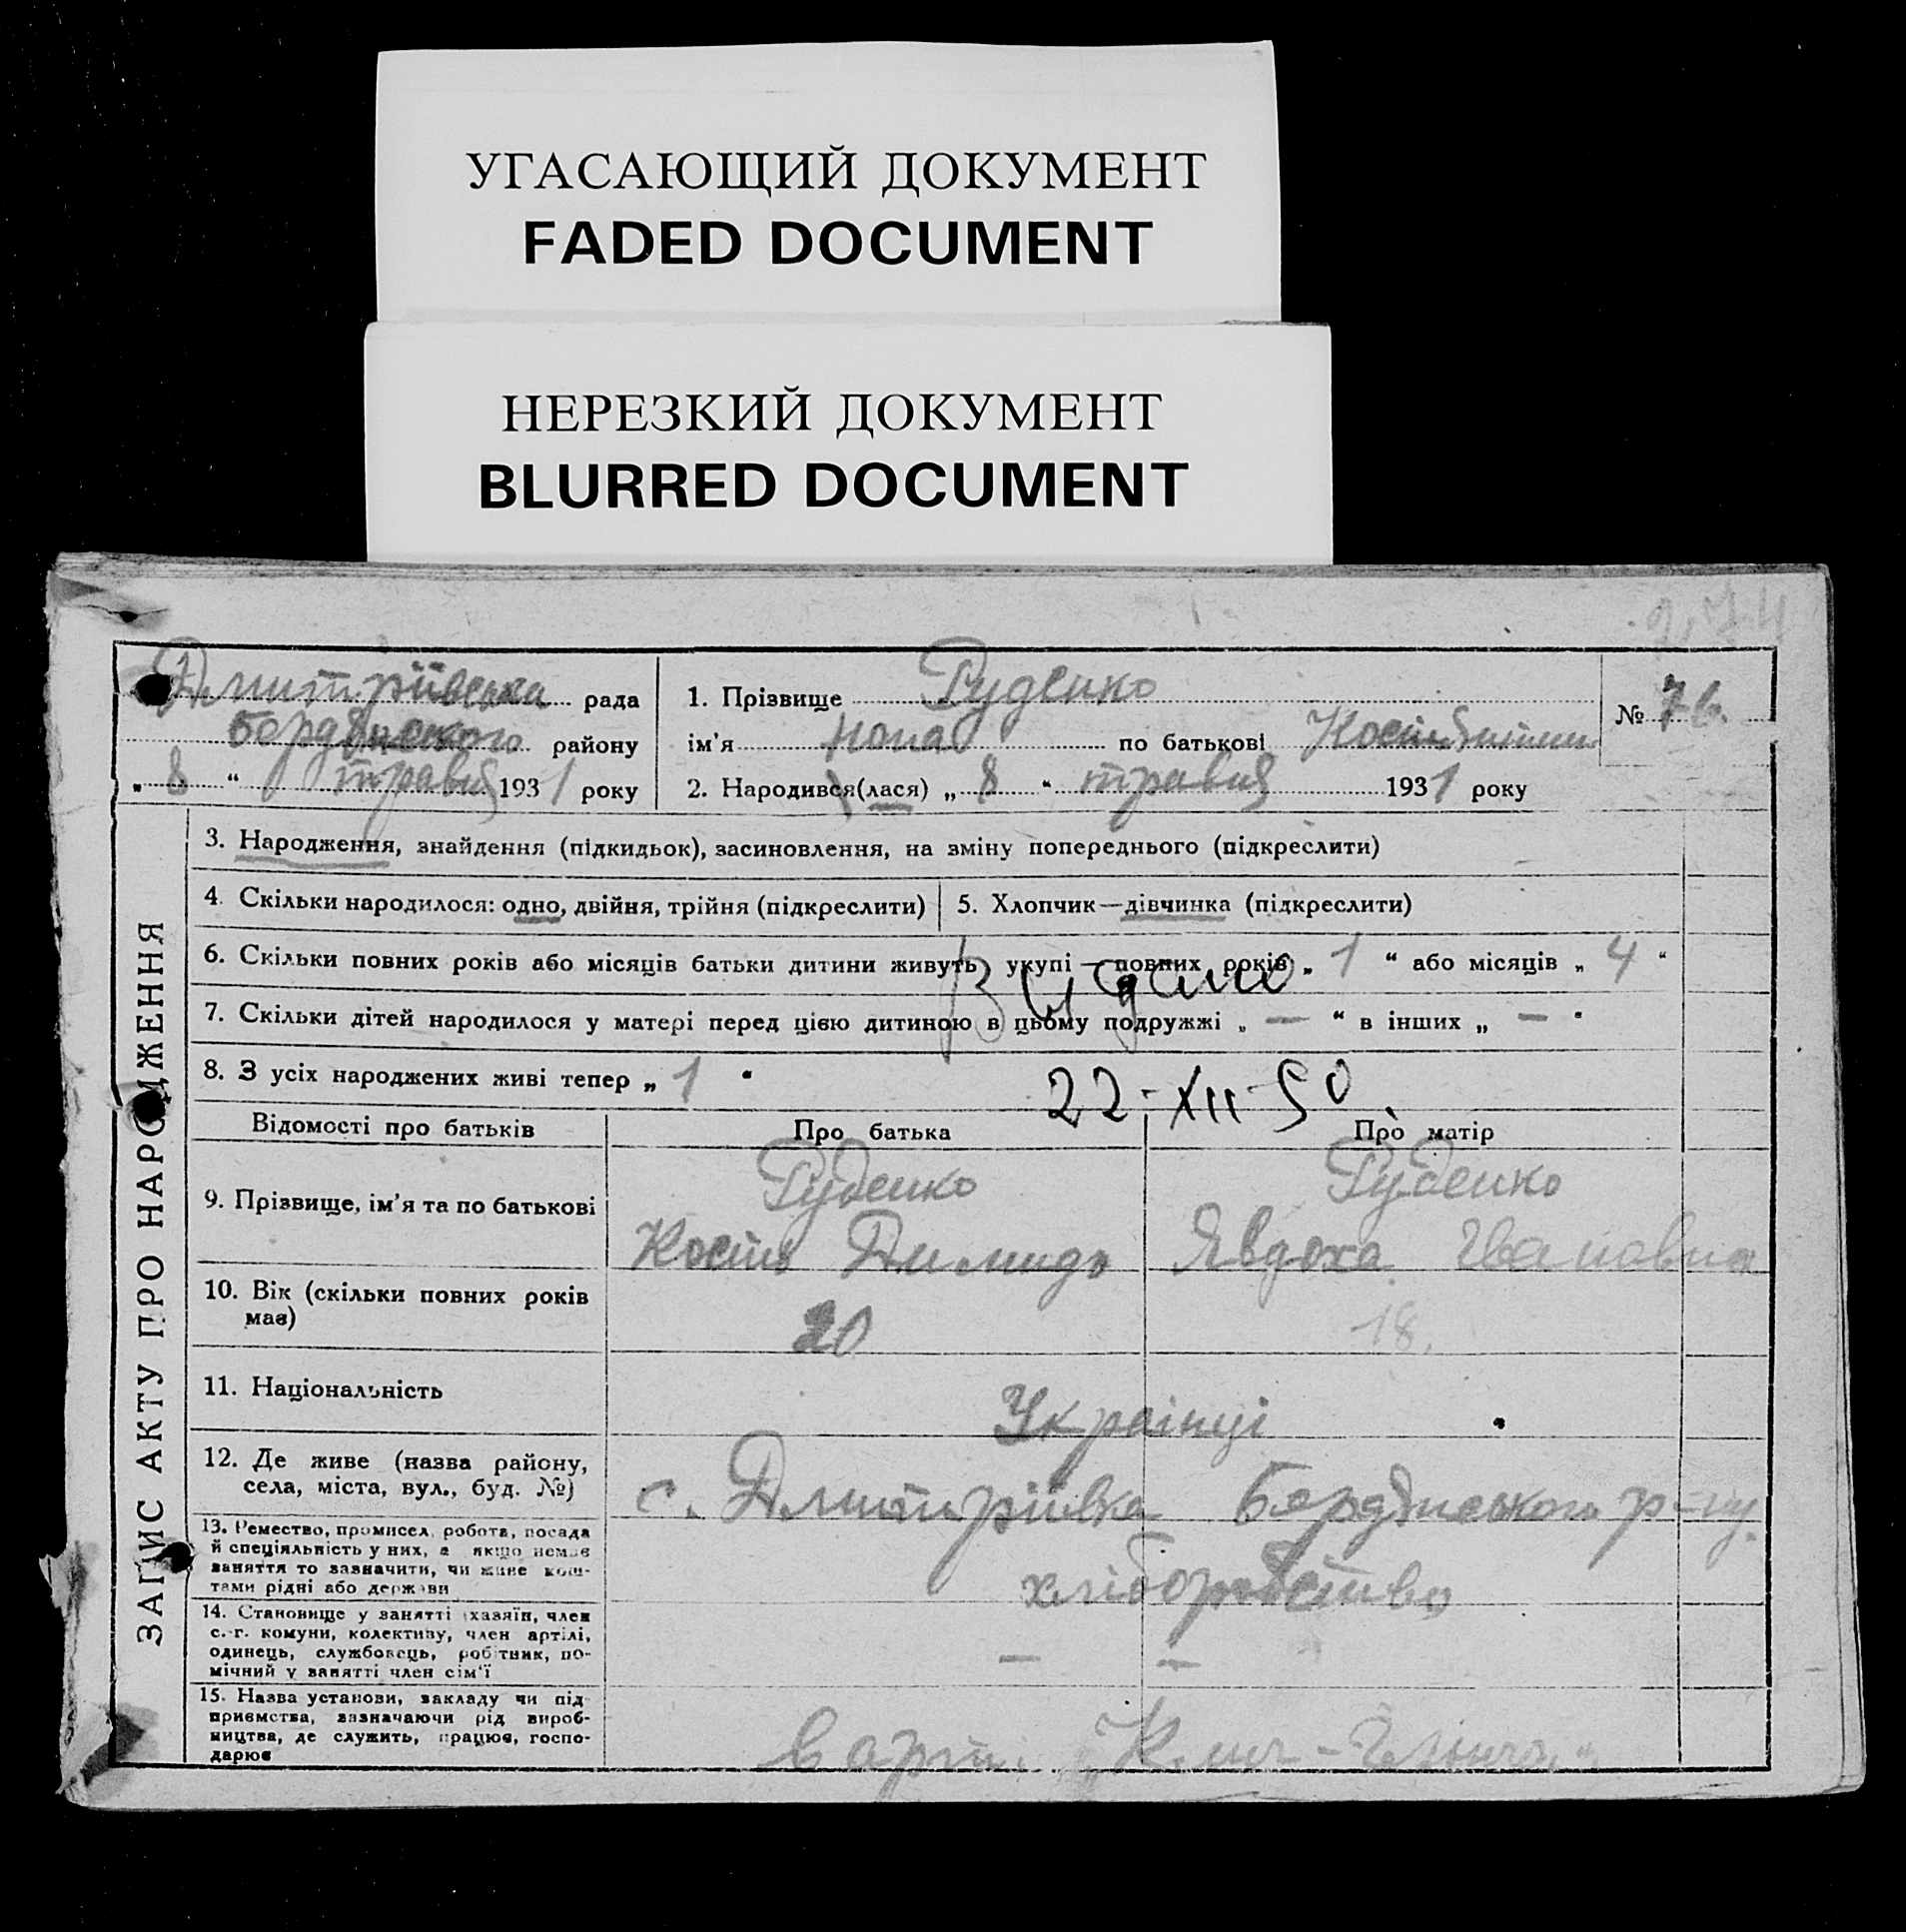 УГАСАЮЩИЙ ДОКУМЕНТ
FADED DOCUMENT
НЕРЕЗКИЙ ДОКУМЕНТ
BLURRED DOCUMENT
Дмитріївська рада
Бердянського району
„ 8 “ травня 1931 року
1. Прізвище Руденко
ім'я Нона по батькові
2. Народився(лася) „ 8 “ травня 1931 року
№ 76.
ЗАПИС АКТУ ПРО НАРОДЖЕННЯ
3. Народження, знайдення (підкидьок), засиновлення, на зміну попереднього (підкреслити)
4. Скільки народилося: одно, двійня, трійня (підкреслити)
5. Хлопчик—дівчинка (підкреслити)
6. Скільки повних років або місяців батьки дитини живуть укупі — повних років „ 1 “ або місяців „ 4 “
Видано
7. Скільки дітей народилося у матері перед цією дитиною в цьому подружжі „ — “ в інших „ — “
8. З усіх народжених живі тепер „ 1 “
22-XII-50
Відомості про батьків
Про батька
Про матір
9. Прізвище, ім'я та по батькові
Руденко
Кость
Руденко
Явдоха Івановна
10. Вік (скільки повних років має)
20
18.
11. Національність
Українці
12. Де живе (назва району,
села, міста, вул., буд. №)
с. Дмитріївка Бердянського р-ну.
13. Ремество, промисел, робота, посада
й спеціяльність у них, а якщо немає
заняття то зазначити, чи живе кош-
тами рідні або держави
хліборобство
14. Становище у занятті (хазяїн, член
с.-г. комуни, колективу, член артілі,
одинець, службовець, робітник, по-
мічний у занятті член сім'ї
— —
15. Назва установи, закладу чи під-
приємства, зазначаючи рід вироб-
ництва, де служить, працює, госпо-
дарює
в арт.